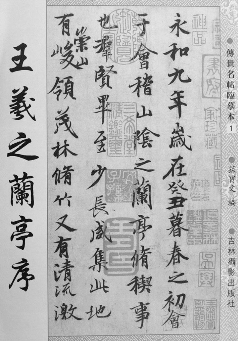 傳世名帖臨摹本 1
吉林攝影出版社
永和九年歲在癸丑暮春之初會
于會稽山陰之蘭亭脩禊事
也羣賢畢至少長咸集此地
有崇山峻領茂林脩竹又有清流激
王羲之蘭亭序